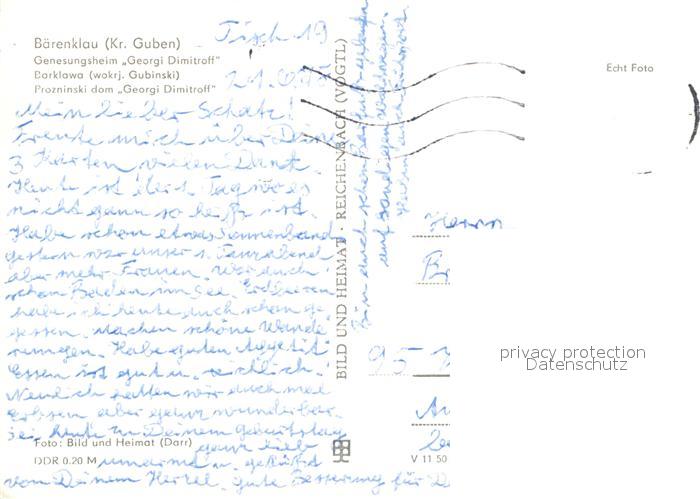 Bärenklau (Kr. Guben)
Genesungsheim „Georgi Dimitroff"
Barklawa (wokrj. Gubinski)
Prozninski dom „Georgi Dimitroff"
Tisch 19
21.6.
Mein lieber Schatz!
Freute mich über Deine
3 Karten, vielen Dank.
Heute ist der 1. Tag wo es
nicht ganz so heiß ist.
Habe schon etwas Sonnenbrand
gestern war unser 1. Tanzabend
aber mehr Frauen. War auch
schon Baden im See. Erdbeeren
habe ich heute auch schon ge-
gessen. Machen schöne Wande
rungen. Habe guten Appetit
Essen ist gut u. reichlich.
Neulich hatten wir auch mal
Erbsen aber ganz wunderbar.
Sei heute zu Deinem Geburtstag
ganz lieb
umarmt u. geküßt
von Deinem gute Besserung für D
Bin auch schon
auf sandigen
BILD UND HEIMAT · REICHENBACH (VOGTL)
Echt Foto
Herrn
95
privacy protection
Datenschutz
Foto: Bild und Heimat (Darr)
DDR 0.20 M
V 11 50